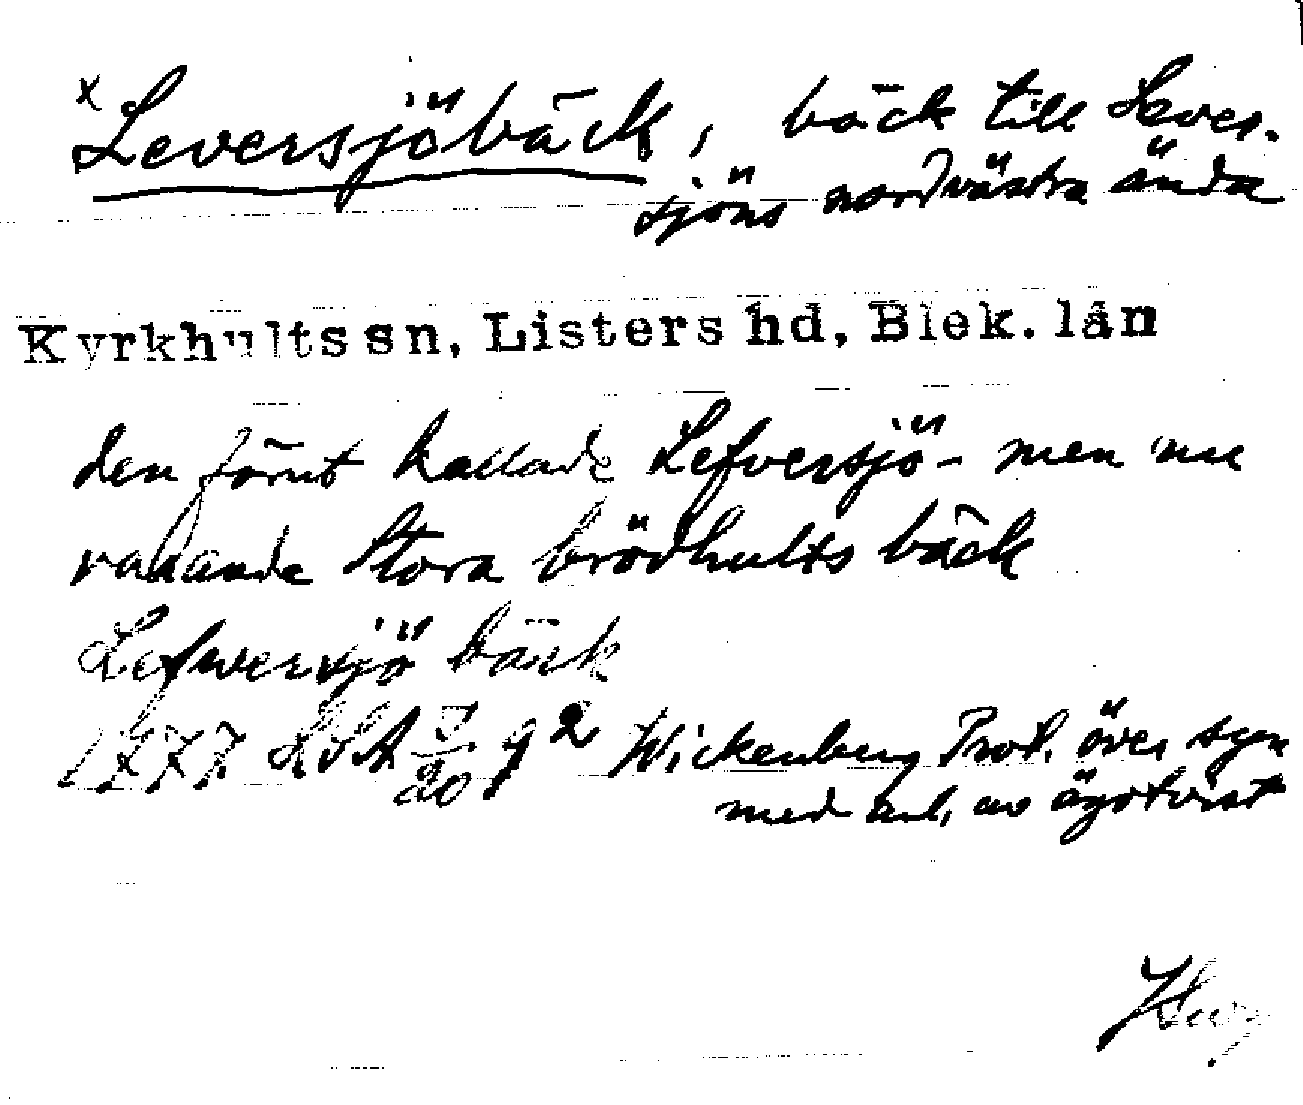 x Leversjöbäck, bäck till Lever-
sjöns nordvästra ända
Kyrkhults sn, Listers hd, Blek. län
den förut kallade Lefversjö- men nu
varande Stora brödhults bäck
Lefwersjö bäck
1777. LSA J/20 92 Wickenberg Prot. över syn
med anl. av ägotvist